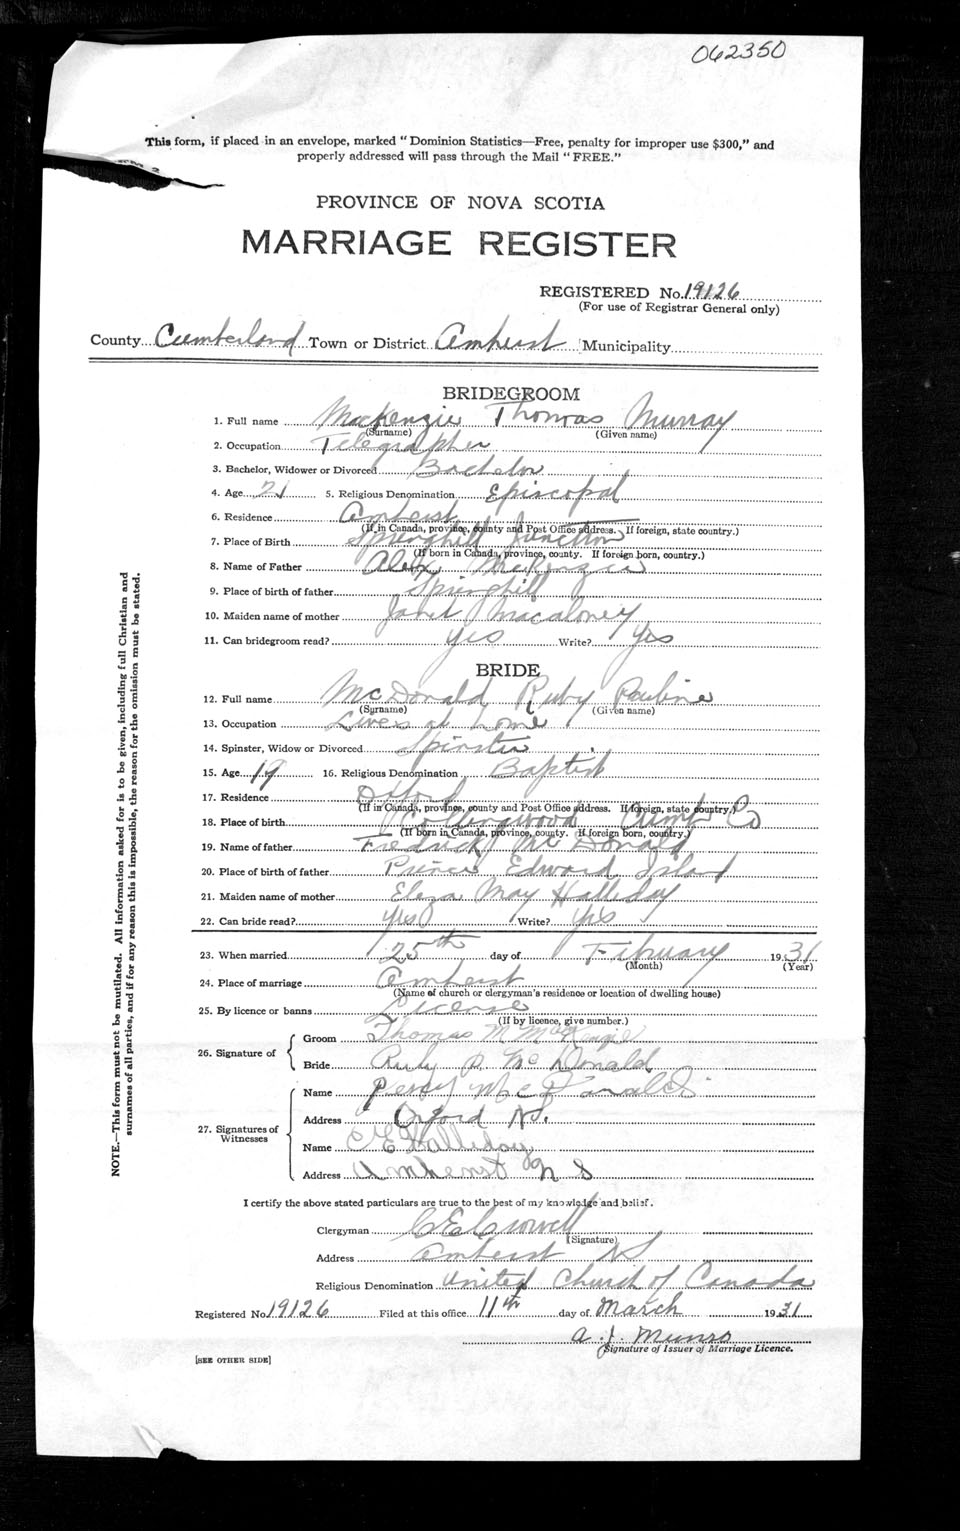 062350
This form, if placed in an envelope, marked "Dominion Statistics—Free, penalty for improper use $300," and
properly addressed will pass through the Mail "FREE."
PROVINCE OF NOVA SCOTIA
MARRIAGE REGISTER
REGISTERED No. 19126
(For use of Registrar General only)
County Cumberland Town or District Amherst Municipality
BRIDEGROOM
1. Full name MacKenzie Thomas Murray
(Surname) (Given name)
2. Occupation Telegrapher
3. Bachelor, Widower or Divorced Bachelor
4. Age 21 5. Religious Denomination Episcopal
6. Residence Amherst
(If in Canada, province, county and Post Office address. If foreign, state country.)
7. Place of Birth Springhill Junction
(If born in Canada, province, county. If foreign born, country.)
8. Name of Father Alex McKenzie
9. Place of birth of father Springhill
10. Maiden name of mother Janet Macaloney
11. Can bridegroom read? Yes Write? Yes
BRIDE
12. Full name McDonald Ruby Pauline
(Surname) (Given name)
13. Occupation Lives at home
14. Spinster, Widow or Divorced Spinster
15. Age 19 16. Religious Denomination Baptist
17. Residence Oxford
(If in Canada, province, county and Post Office address. If foreign, state country.)
18. Place of birth Collingwood Cumb Co
(If born in Canada, province, county. If foreign born, country.)
19. Name of father Fredrick McDonald
20. Place of birth of father Prince Edward Island
21. Maiden name of mother Eleza May Halliday
22. Can bride read? Yes Write? Yes
23. When married 25th day of February 1931
(Month) (Year)
24. Place of marriage Amherst
(Name of church or clergyman's residence or location of dwelling house)
25. By licence or banns License
(If by licence, give number.)
26. Signature of
Groom Thomas M McKenzie
Bride Ruby P. McDonald
27. Signatures of Witnesses
Name Percy McDonald
Address Oxford N.
Name C E Halliday
Address Amherst N S
I certify the above stated particulars are true to the best of my knowledge and belief.
Clergyman C E Crowell
(Signature)
Address Amherst N S
Religious Denomination United Church of Canada
Registered No. 19126 Filed at this office 11th day of March 1931
A. J. Munro
Signature of Issuer of Marriage Licence.
[SEE OTHER SIDE]
NOTE.—This form must not be mutilated. All information asked for is to be given, including full Christian and
surnames of all parties, and if for any reason this is impossible, the reason for the omission must be stated.